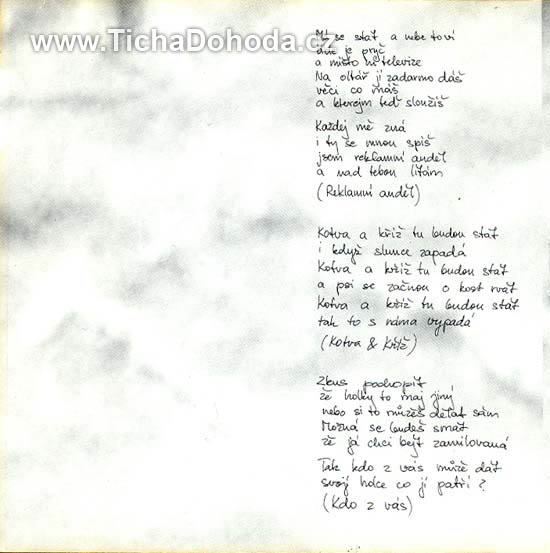 www.TichaDohoda.cz
se stát a nebe
je pryč
a místo ní televize
Na oltář jí zadarmo dáš
věci co máš
a kterejm teď sloužíš
Každej mě zná
i ty se mnou spíš
jsem reklamní anděl
a nad tebou lítám
(Reklamní anděl)
Kotva a kříž tu budou stát
i když slunce zapadá
Kotva a kříž tu budou stát
a psi se začnou o kost rvát
Kotva a kříž tu budou stát
tak to s náma vypadá
(Kotva & Kříž)
Zkus pochopit
že holky to maj jiný
nebo si to můžeš dělat sám
Možná se budeš smát
že já chci bejt zamilovaná
Tak kdo z vás může dát
svojí holce co jí patří?
(Kdo z vás)